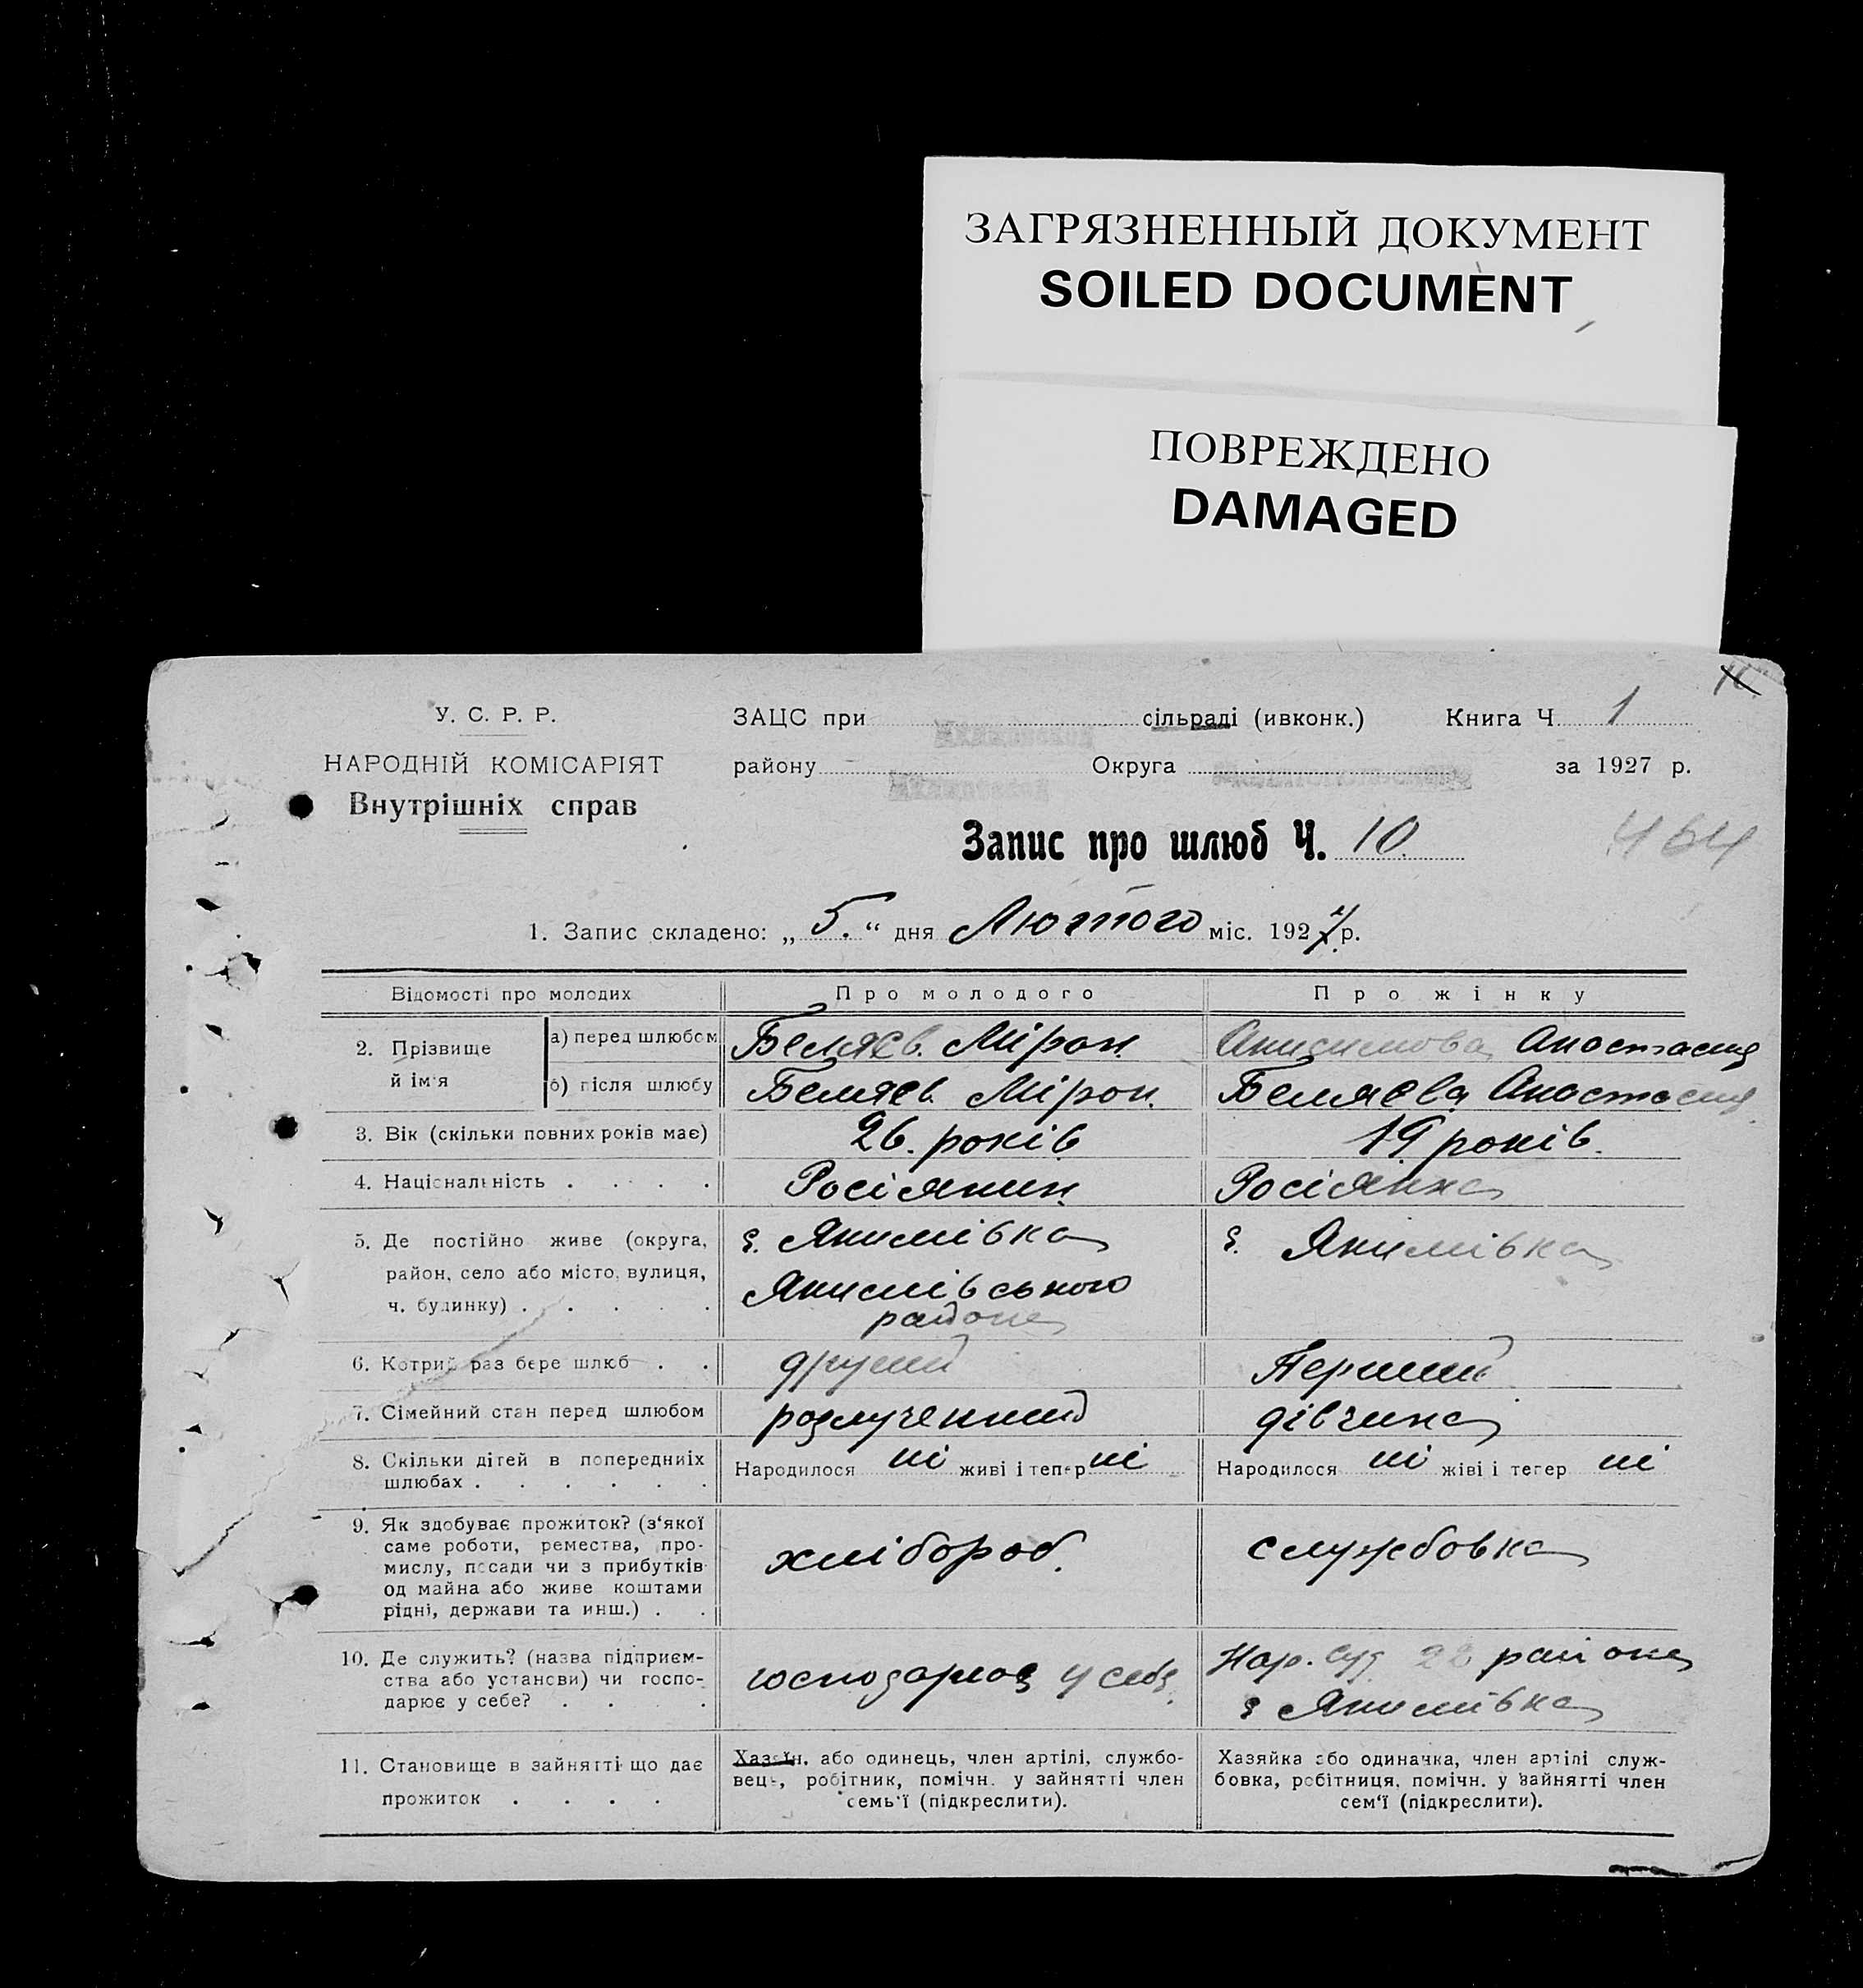 ЗАГРЯЗНЕННЫЙ ДОКУМЕНТ
SOILED DOCUMENT
ПОВРЕЖДЕНО
DAMAGED
У. С. Р. Р.
НАРОДНІЙ КОМІСАРІЯТ
Внутрішніх справ
ЗАЦС при сільраді (ивконк.) Книга Ч 1
району Округа за 1927 р.
Запис про шлюб Ч. 10
464
1. Запис складено: „ 5. “ дня Лютого міс. 1927 р.
Відомості про молодих Про молодого Про жінку
2. Прізвище й ім'я а) перед шлюбом Беляєв Мірон Анисимова Анастасия
б) після шлюбу Беляєв Мірон Беляєва Анастасия
3. Вік (скільки повних років має) 26. років 19 років.
4. Національність . . . . Росіянин Росіянка
5. Де постійно живе (округа, с. Якимівка с. Якимівка
район, село або місто, вулиця, Якимівського
ч. будинку) . . . . . района
6. Котрий раз бере шлюб . . другий Перший
7. Сімейний стан перед шлюбом розлученний дівчина
8. Скільки дітей в попередниіх шлюбах . . . . . . Народилося ні живі і тепер ні Народилося ні жіві і тепер ні
9. Як здобуває прожиток? (з'якої
саме роботи, ремества, про-
мислу, посади чи з прибутків
од майна або живе коштами
рідні, держави та инш.) . .
хлібороб. службовка
10. Де служить? (назва підприєм- Нар. суд района
ства або установи) чи госпо- господарює у себе с Якимівка
дарює у себе? . . .
11. Становище в зайнятті що дає
прожиток . . . .
Хазяїн, або одинець, член артілі, службо-
вець, робітник, помічн. у зайнятті член
семь'ї (підкреслити).
Хазяйка або одиначка, член артілі служ-
бовка, робітниця, помічн. у зайнятті член
сем'ї (підкреслити).